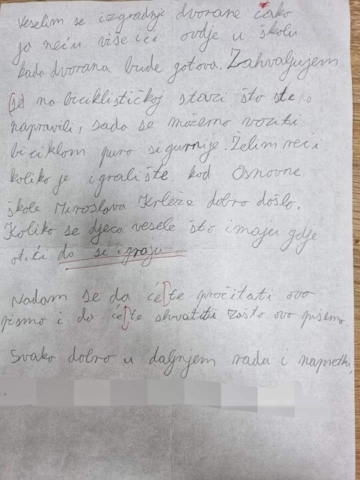 Veselim se izgradnje dvorane iako
ja neću više ići ovdje u školu
kada dvorana bude gotova. Zahvaljujem
(se) na biciklističkoj stazi što ste
napravili, sada se možemo voziti
biciklom puno sigurnije. Želim reći
koliko je igralište kod Osnovne
škole Miroslava Krleže dobro došlo.
Koliko se djeca vesele što imaju gdje
otići da se igraju
Nadam se da ćete pročitati ovo
pismo i da ćete shvatiti zašto ovo pišemo
Svako dobro u daljnjem radu i napretku,